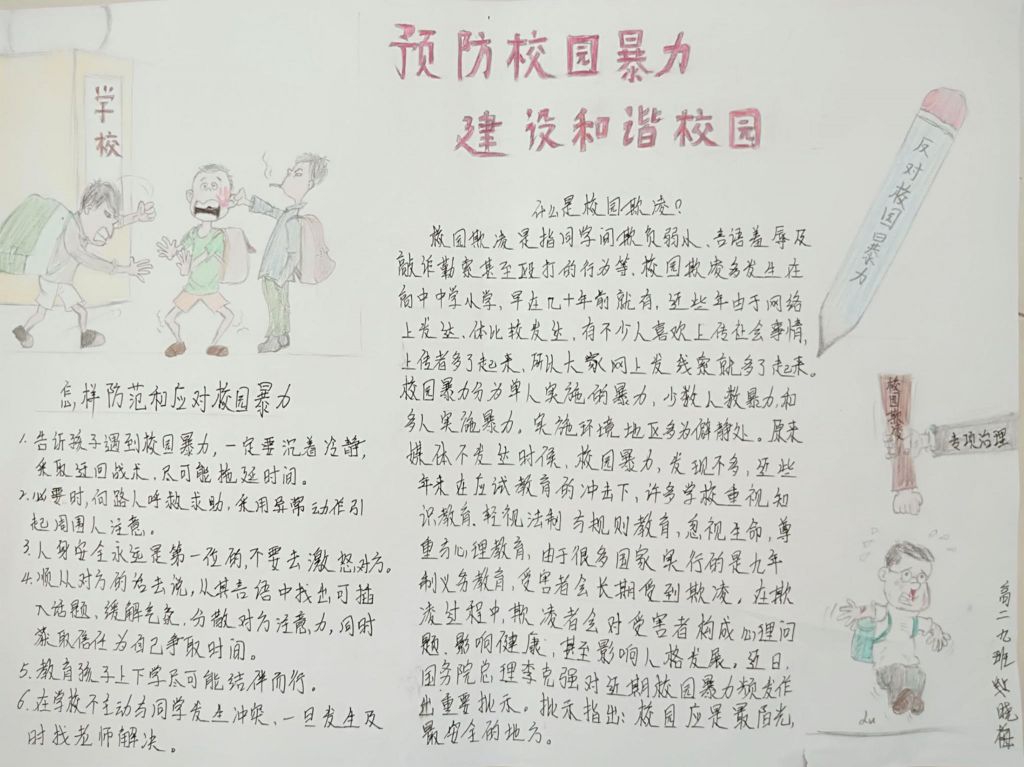 预防校园暴力
建设和谐校园
学校
反对校园暴力
什么是校园欺凌？
校园欺凌是指同学间欺负弱小、言语羞辱及
敲诈勒索甚至殴打的行为等，校园欺凌多发生在
初中中学小学，早在几十年前就有，近些年由于网络
上发达、体比较发达，有不少人喜欢上传社会事情，
上传者多了起来，所以大家网上发我察就多了起来。
校园暴力分为单人实施的暴力，少数人数暴力，和
多人实施暴力。实施环境地区多为僻静处。原来
媒体不发达时候、校园暴力，发现不多，近些
年来在应试教育的冲击下，许多学校重视知
识教育、轻视法制与规则教育，忽视生命，尊
重与心理教育，由于很多国家实行的是九年
制义务教育，受害者会长期受到欺凌，在欺
凌过程中欺凌者会对受害者构成心理问
题、影响健康；甚至影响人格发展。近日，
国务院总理李克强对近期校园暴力频发作
出重要批示。批示指出：校园应是最阳光，
最安全的地方。
怎样防范和应对校园暴力
1.告诉孩子遇到校园暴力，一定要沉着冷静，
采取迂回战术，尽可能拖延时间。
2.必要时，向路人呼救求助，采用异常动作引
起周围人注意。
3.人身安全永远是第一位的，不要去激怒对方。
4.顺从对方的话去说，从其言语中找出可插
入话题、缓解气氛，分散对方注意力，同时
获取信任为自己争取时间。
5.教育孩子上下学尽可能结伴而行。
6.在学校不主动与同学发生冲突，一旦发生及
时找老师解决。
校园欺凌
专项治理
高二九班 晓梅